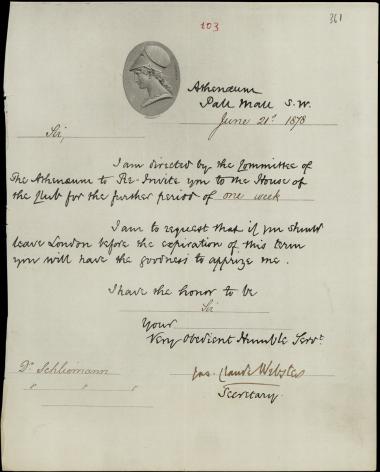 103
361
Athenæum
Pall Mall S.W.
June 21st 1878
Sir,
I am directed by the Committee of
The Athenæum to Re-Invite you to the House of
the Club for the further period of one week
I am to request that if you should
leave London before the expiration of this term
you will have the goodness to apprize me.
I have the honor to be
Sir
Your
Very Obedient Humble Servt.
Dr. Schliemann
" " "
Jas. Claude Webster
Secretary.